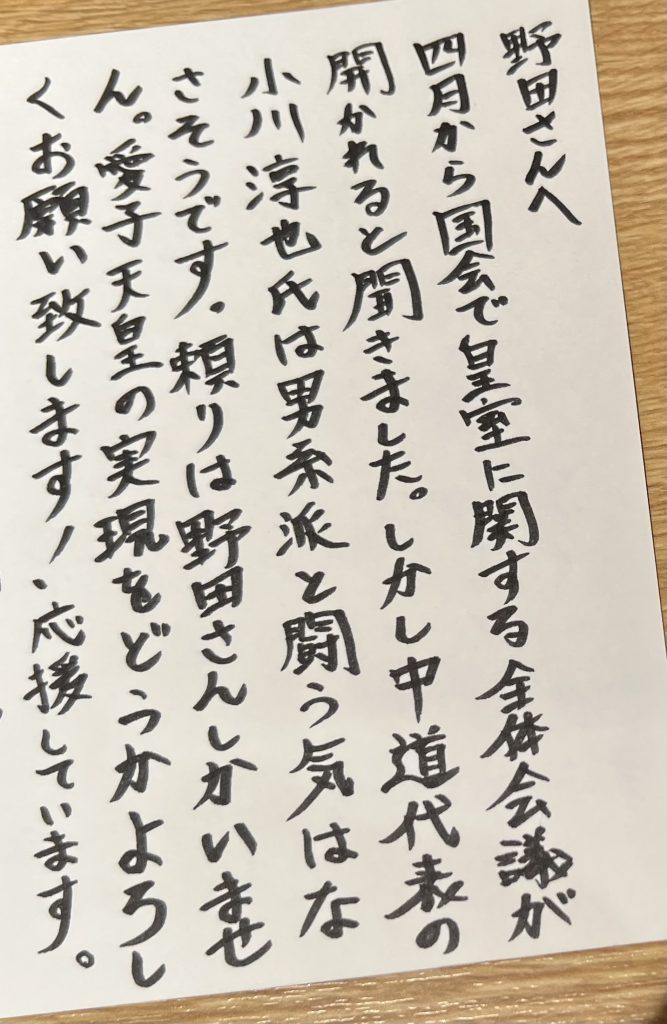 野田さんへ
四月から国会で皇室に関する全体会議が
開かれると聞きました。しかし中道代表の
小川淳也氏は男系派と闘う気はな
さそうです。頼りは野田さんしかいませ
ん。愛子天皇の実現をどうかよろし
くお願い致します!、応援しています。